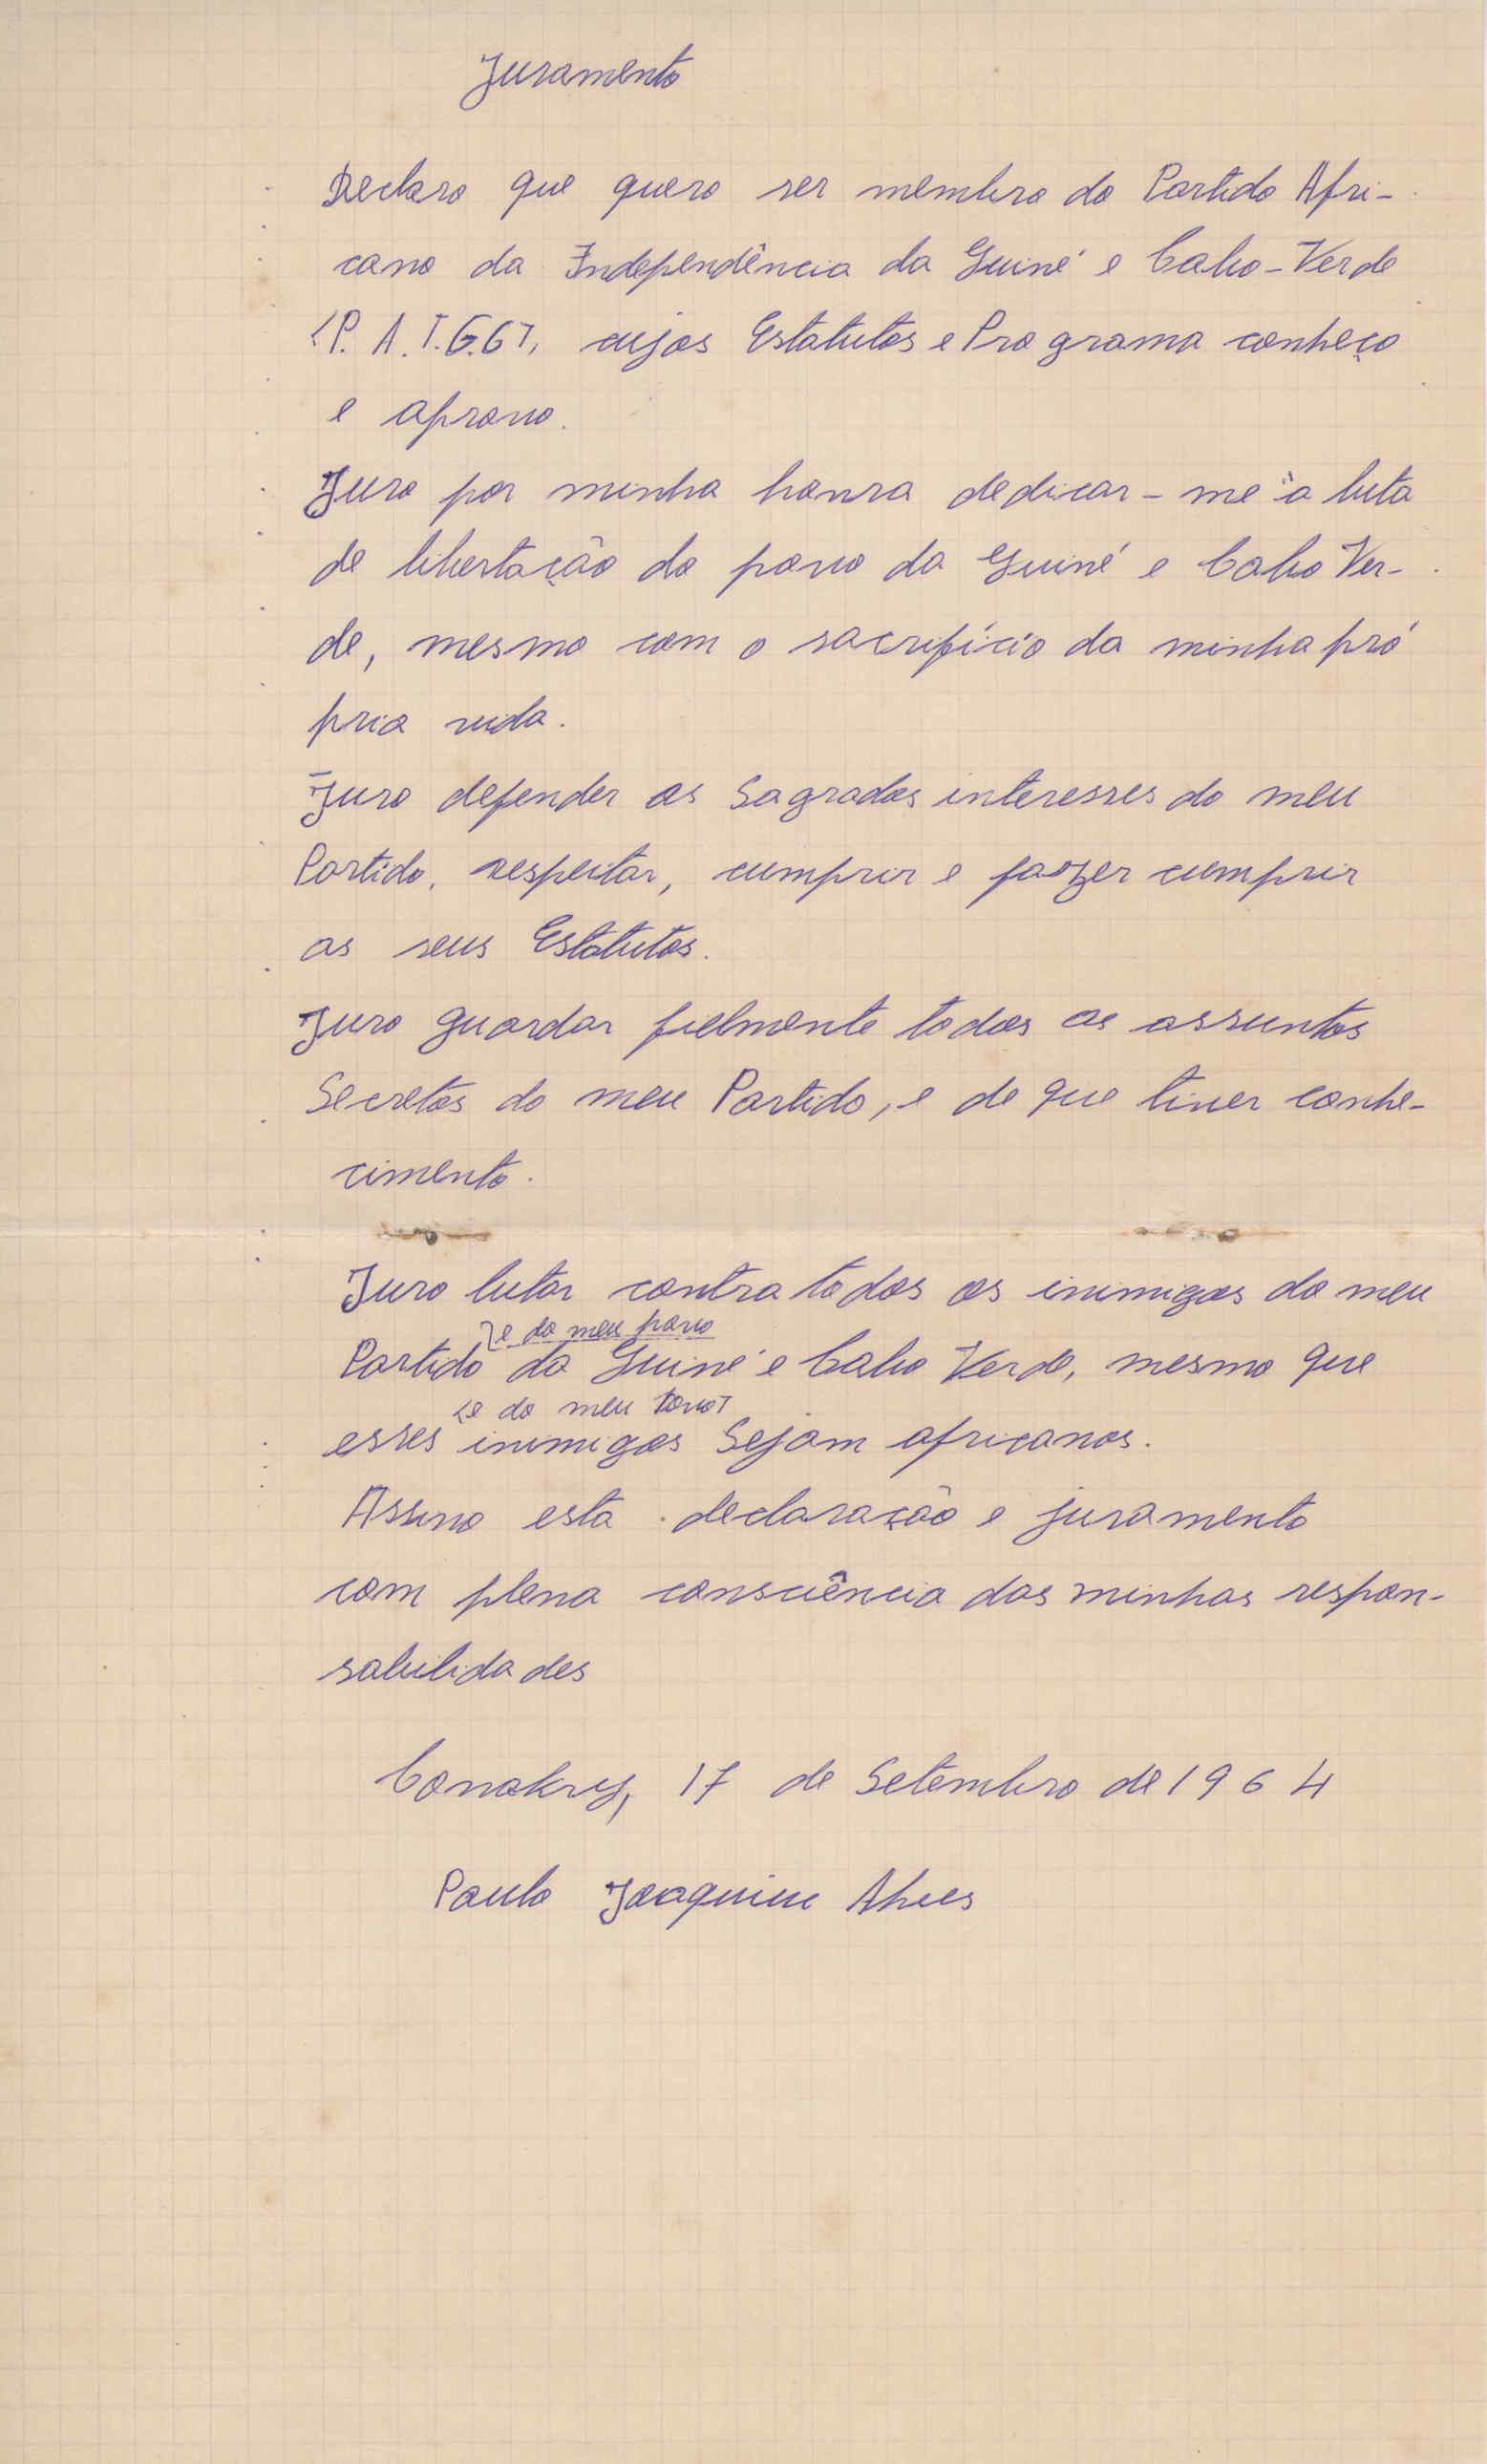 Juramento
Declaro que quero ser membro do Partido Afri-
cano da Independência da Guiné e Cabo-Verde
(P. A. I. G. C), cujos Estatutos e Programa conheço
e aprovo.
Juro por minha honra dedicar-me à luta
de libertação do povo da Guiné e Cabo Ver-
de, mesmo com o sacrifício da minha pró
pria vida.
Juro defender os Sagrados interesses do meu
Partido, respeitar, cumprir e fazer cumprir
os seus Estatutos.
Juro guardar fielmente todos os assuntos
Secretos do meu Partido, e de que tiver conhe-
cimento.
Juro lutar contra todos os inimigos do meu
e do meu povo
Partido da Guiné e Cabo Verde, mesmo que
(e do meu povo)
esses inimigos Sejam africanos.
Assino esta declaração e juramento
com plena consciência das minhas respon-
sabilidades
Conakry, 17 de Setembro de 1964
Paulo Joaquim Alves